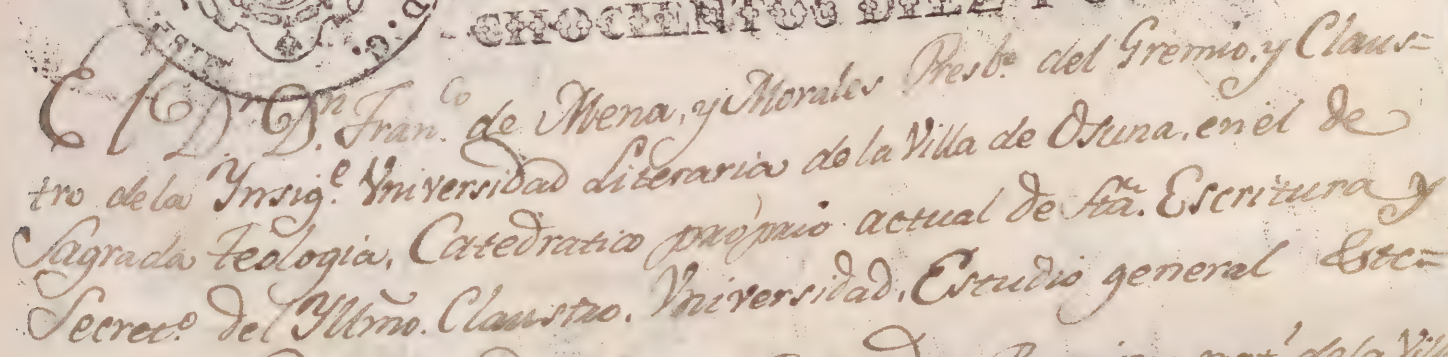 CHOCIENTOS DIEZ Y
El Dr. Dn. Fran.co de Mena, y Morales Presb.o del Gremio, y Claus=
tro de la Ynsig.e Vniversidad Literaria de la Villa de Osuna, en el de
Sagrada Teologia, Catedratico própio actual de Sta. Escritura y
Secret.o del Yllmo. Claustro, Vniversidad, Estudio general &tc=
de la Vill